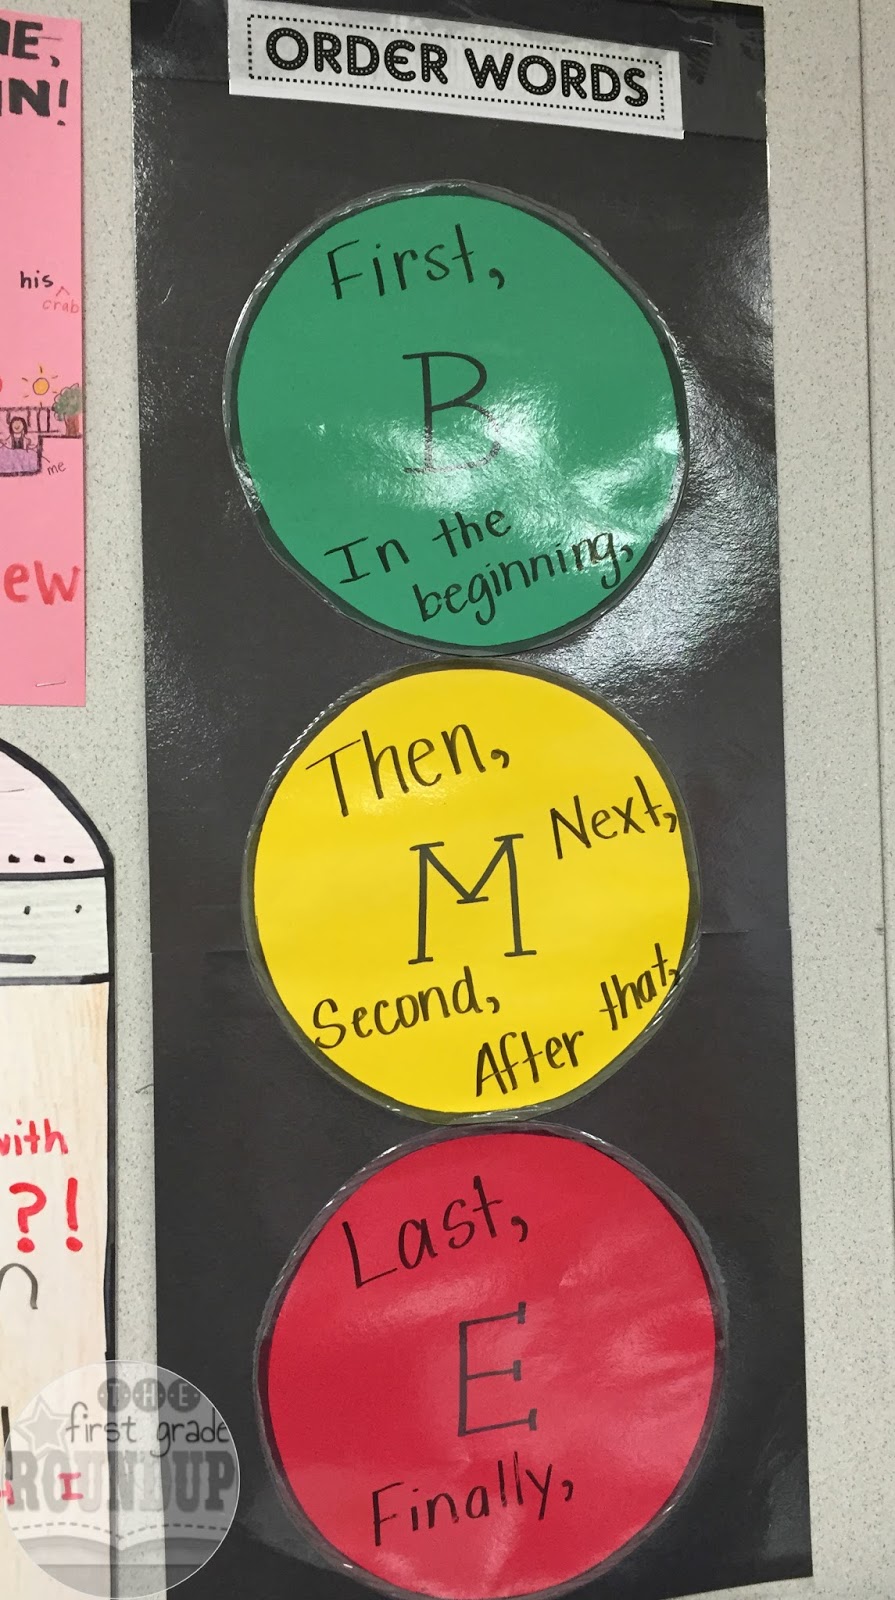 ORDER WORDS
First,
B
In the
beginning,
Then,
Next,
M
Second,
After that,
Last,
E
Finally,
IN!
his
crab
me
ew
with
?!
I
THE
first grade
ROUNDUP